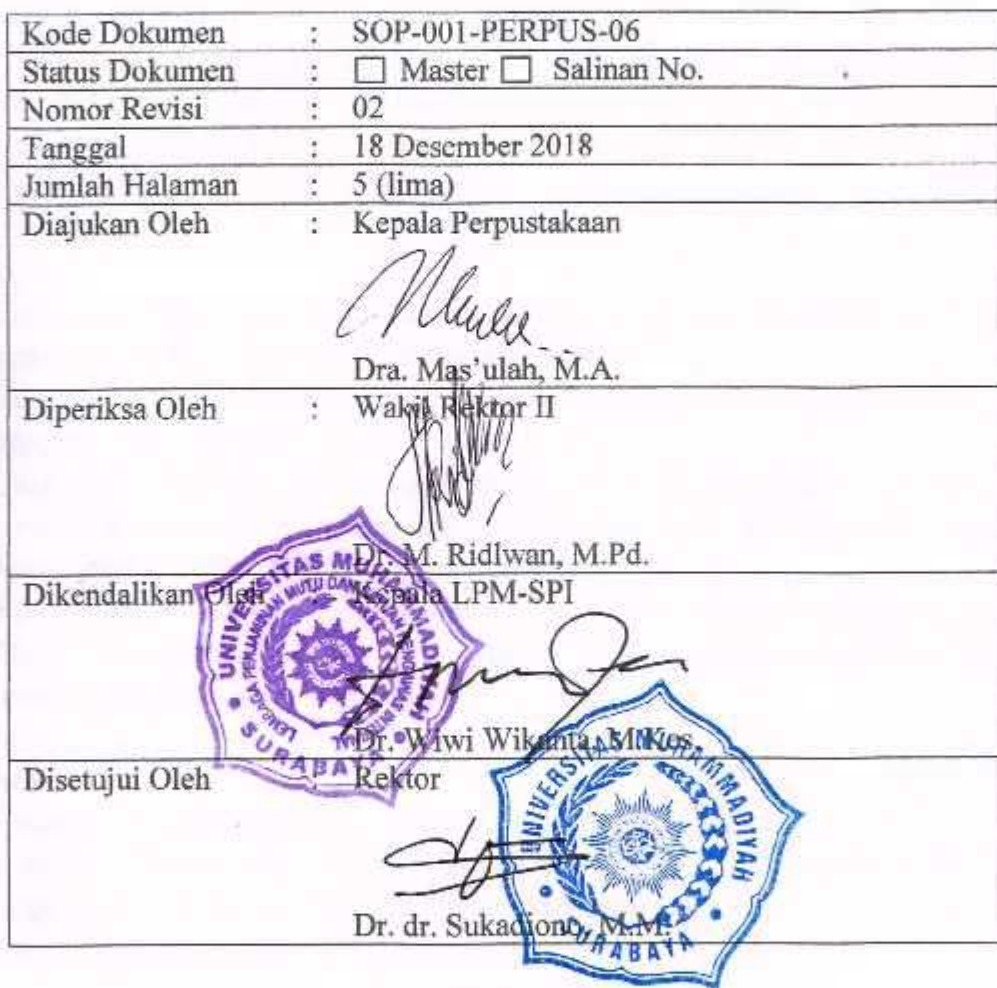 Kode Dokumen : SOP-001-PERPUS-06
Status Dokumen : ☐ Master ☐ Salinan No.
Nomor Revisi : 02
Tanggal : 18 Desember 2018
Jumlah Halaman : 5 (lima)
Diajukan Oleh : Kepala Perpustakaan
Dra. Mas'ulah, M.A.
Diperiksa Oleh : Wakil Rektor II
Dr. M. Ridlwan, M.Pd.
Dikendalikan Oleh : Kepala LPM-SPI
Dr. Wiwi Wikanta, M.Kes.
Disetujui Oleh Rektor
Dr. dr. Sukadiono, M.M.
UNIVERSITAS MUHAMMADIYAH
SURABAYA
LEMBAGA PENJAMINAN MUTU DAN
UNIVERSITAS MUHAMMADIYAH
SURABAYA